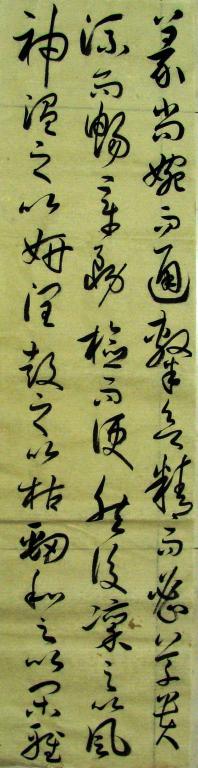 篆尚婉而通隸欲精而密草貴
流而暢章務檢而便然後凜之以風
神溫之以妍潤鼓之以枯勁和之以閑雅